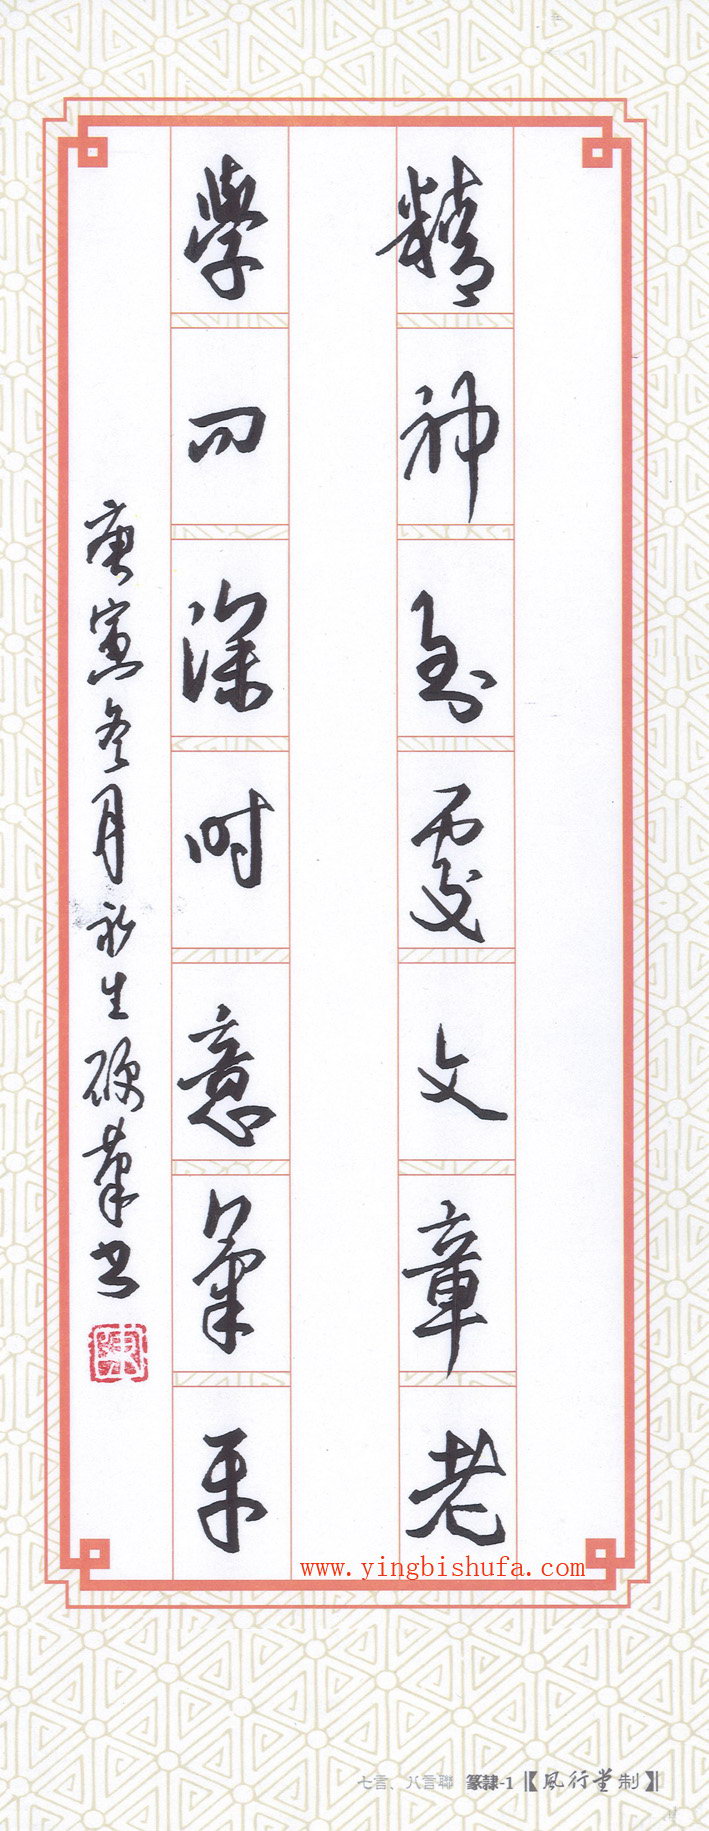 精神到處文章老
學問深時意氣平
庚寅冬月 生硬筆书
www.yingbishufa.com
七言、八言聯 篆隸-1【風行堂制】